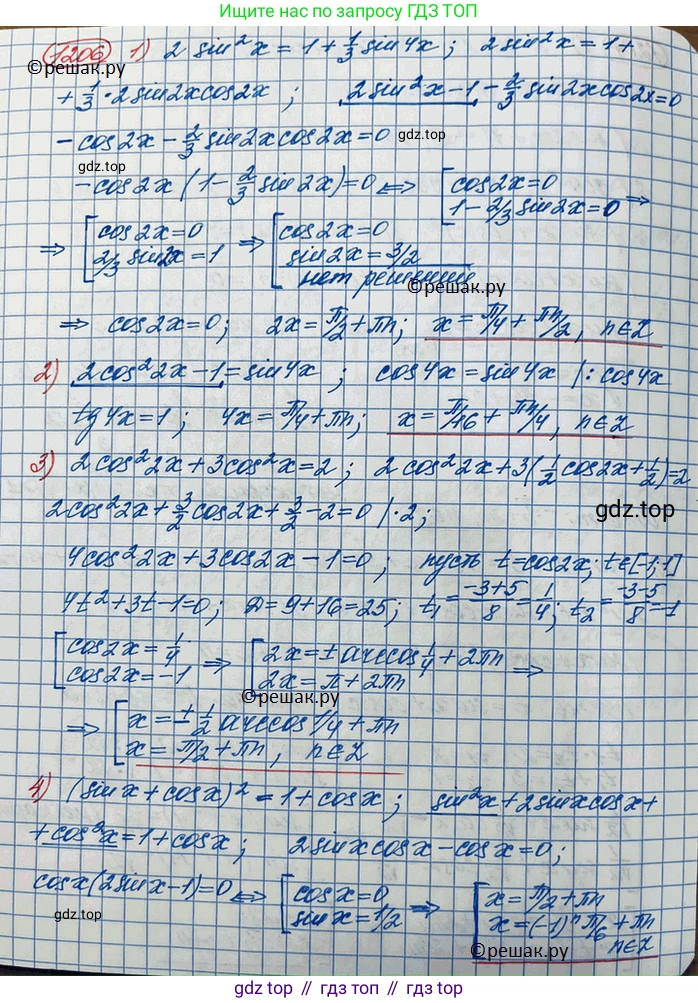 Ищите в поисковике по запросу ГДЗ ТОП
1206 1) 2 sin²x = 1 + 1/3 sin4x ; 2sin²x = 1 +
©reшак.ру
+ 1/3 · 2sin2xcos2x ; 2sin²x-1 - 2/3 sin2xcos2x=0
- cos2x - 2/3 sin2xcos2x = 0
gdz.top
- cos2x (1 - 2/3 sin2x) = 0 <=> [ cos2x=0
1 - 2/3 sin2x = 0 =>
=> [ cos2x=0
2/3 sin2x = 1 => [ cos2x=0
sin2x = 3/2
нет решений
©reшак.ру
=> cos2x=0 ; 2x = π/2 + πn ; x = π/4 + πn/2, n∈Z
2) 2cos²2x-1 = sin4x ; cos4x = sin4x |: cos4x
tg4x = 1 ; 4x = π/4 + πn ; x = π/16 + πn/4, n∈Z
3) 2cos²2x + 3cos²x = 2 ; 2cos²2x + 3(1/2 cos2x + 1/2) = 2
2cos²2x + 3/2 cos2x + 3/2 - 2 = 0 |·2 ;
gdz.top
4cos²2x + 3cos2x - 1 = 0 ; пусть t=cos2x; t∈[-1;1]
4t² + 3t - 1 = 0 ; D = 9+16 = 25 ; t₁ = -3+5/8 = 1/4 ; t₂ = -3-5/8 = -1
[ cos2x = 1/4
cos2x = -1 => [ 2x = ± arccos 1/4 + 2πn
2x = π + 2πn =>
©reшак.ру
=> [ x = ± 1/2 arccos 1/4 + πn
x = π/2 + πn, n∈Z
4) (sinx + cosx)² = 1 + cosx ; sin²x + 2sinxcosx +
+ cos²x = 1 + cosx ; 2sinxcosx - cosx = 0 ;
cosx(2sinx-1) = 0 <=> [ cosx=0
sinx = 1/2 => [ x = π/2 + πn
x = (-1)ⁿ π/6 + πn
n∈Z
gdz.top
©reшак.ру
gdz top // гдз топ // gdz.top